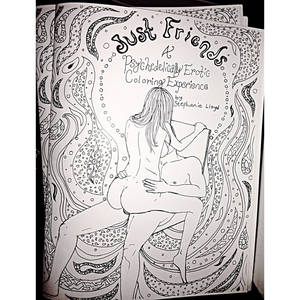 Just Friends
A
Psychedelically Erotic
Coloring Experience
by
Stephanie Lloyd